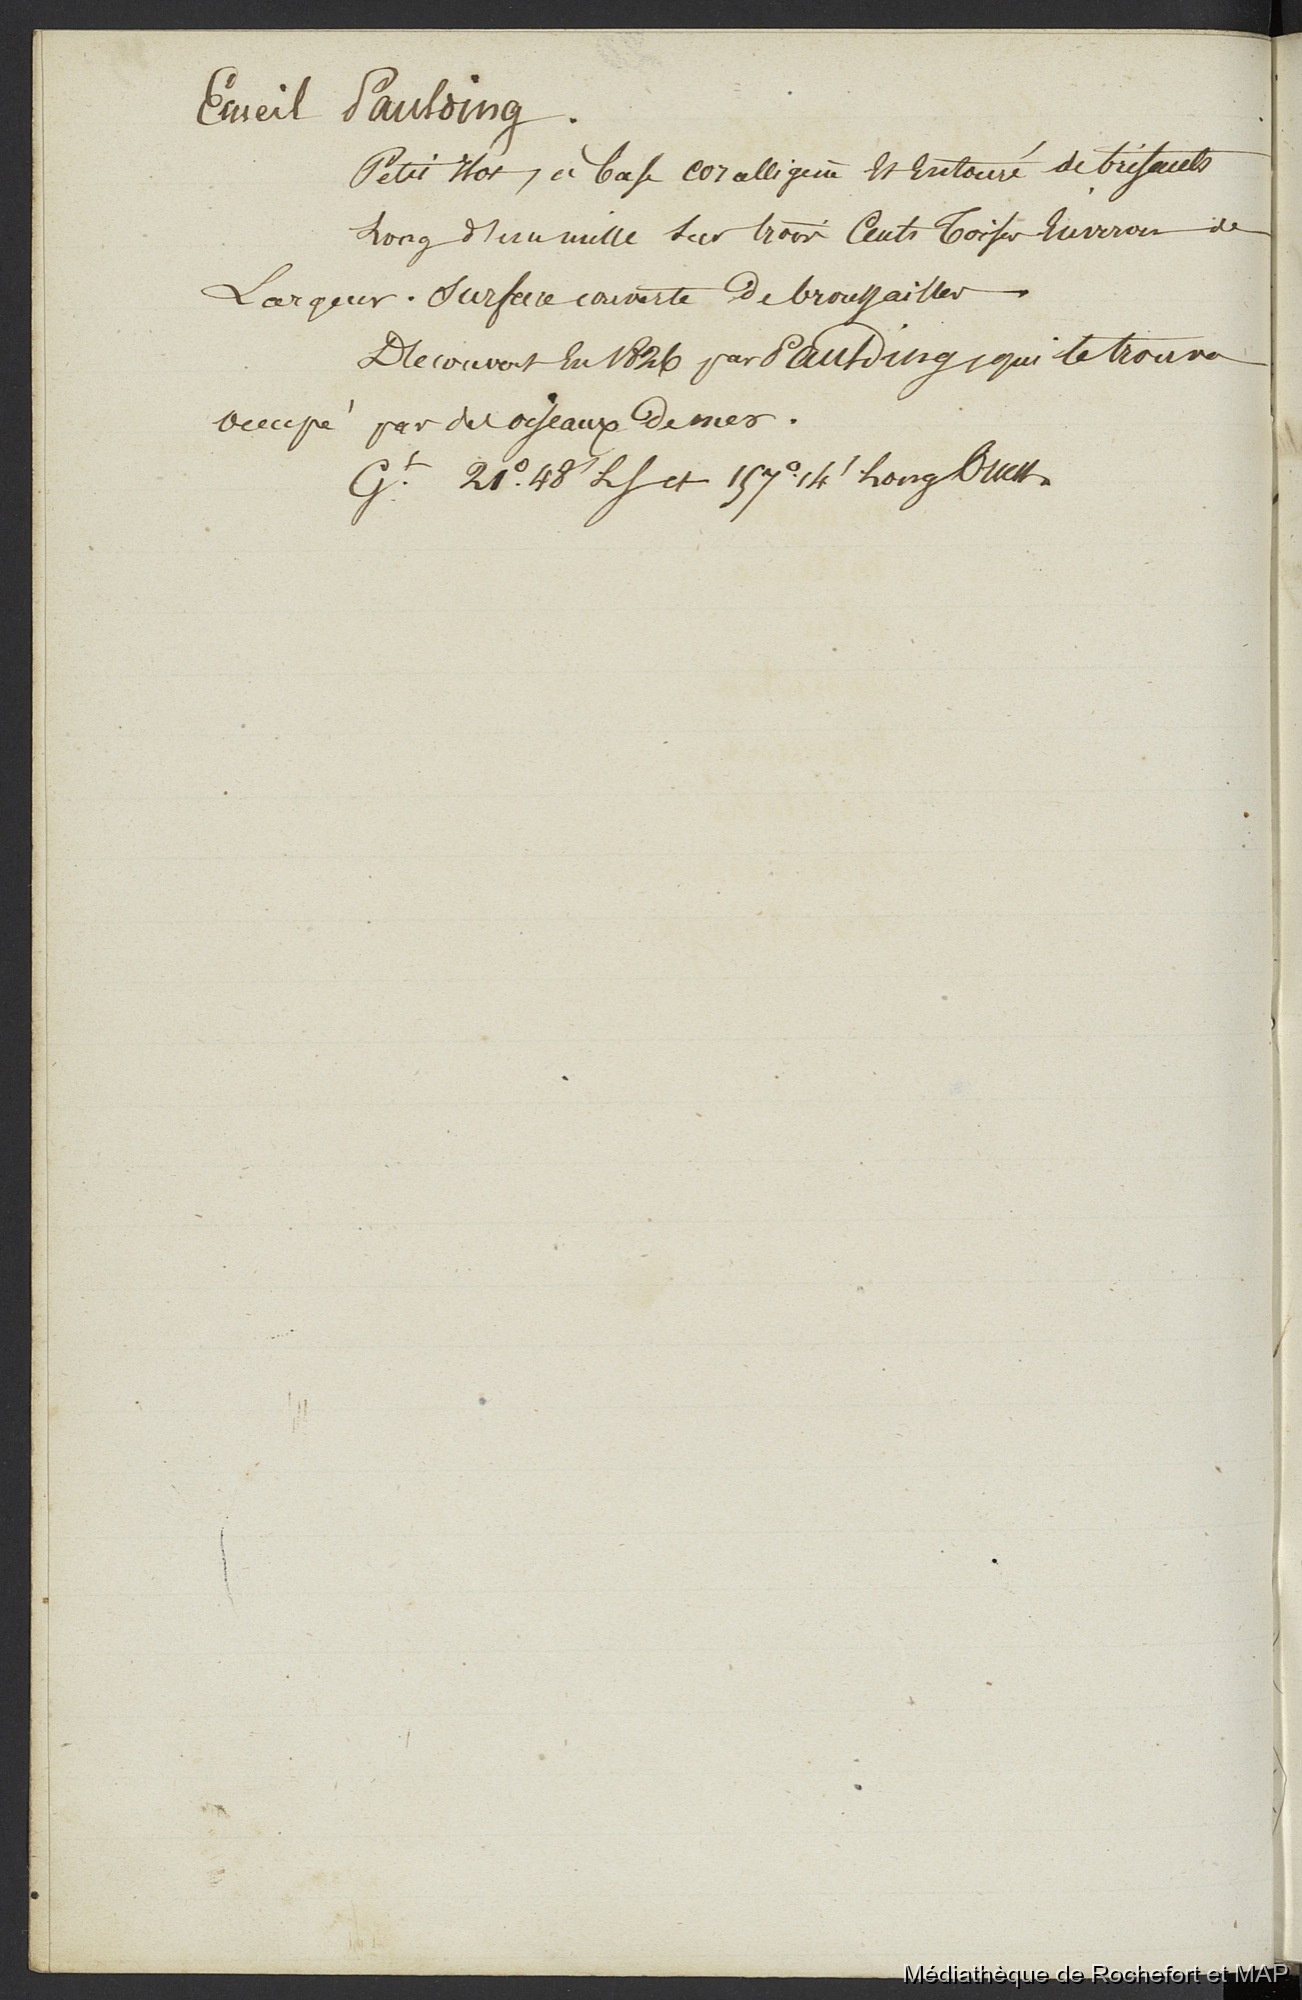 Ecueil Paulding.
Petit Ilot, à base coralligène et entouré de brisants
Long d'un mille sur trois cents toises environ de
Largeur. Surface couverte de broussailles
Découvert en 1826 par Paulding, qui le trouva
occupé par des oiseaux de mer.
Gt. 21°.48' LS et 157°.14' Long Ouest.
Médiathèque de Rochefort et MAP